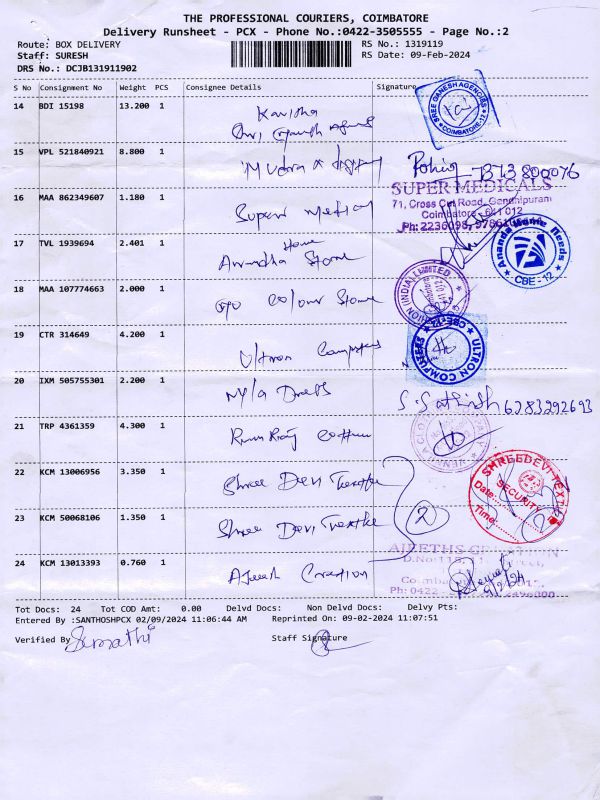 THE PROFESSIONAL COURIERS, COIMBATORE
Delivery Runsheet - PCX - Phone No.:0422-3505555 - Page No.:2
Route: BOX DELIVERY RS No.: 1319119
Staff: SURESH RS Date: 09-Feb-2024
DRS No.: DCJB131911902
S No Consignment No Weight PCS Consignee Details Signature
14 BDI 15198 13.200 1 Kavitha
SHREE GANESH AGENCIES
COIMBATORE-12
15 VPL 521840921 8.800 1 Mudra
SUPER MEDICALS
16 MAA 862349607 1.180 1 Super Medical
71, Cross Cut Road, Gandhipuram
Coimbatore - 641 012
Ph: 2236098,
17 TVL 1939694 2.401 1 Home
Anuradha Store
Ananda Needs
CBE - 12
18 MAA 107774663 2.000 1 Colour Store
(INDIA) LIMITED
19 CTR 314649 4.200 1 Ultron Computers
ULTRON COMPUTERS
CBE-12
20 IXM 505755301 2.200 1 Nyla Dress S. Sathish 6283292693
21 TRP 4361359 4.300 1 Cotton
22 KCM 13006956 3.350 1 Shree Devi Textile
SHREEDEVI TEXTILE
SECURITY
Date....
Time....
23 KCM 50068106 1.350 1 Shree Devi Textile 2
24 KCM 13013393 0.760 1 Ajeeth Creation
AJEETHS
Ph: 0422
9/2/24
Tot Docs: 24 Tot COD Amt: 0.00 Delvd Docs: Non Delvd Docs: Delvy Pts:
Entered By :SANTHOSHPCX 02/09/2024 11:06:44 AM Reprinted On: 09-02-2024 11:07:51
Verified By Sumathi Staff Signature